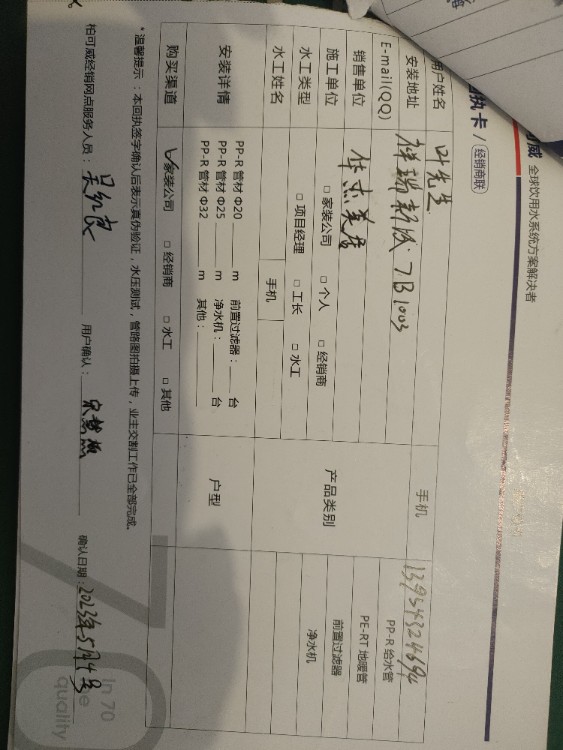 威 全球饮用水系统方案解决者
执卡 / 经销商联
用户姓名 叶先生 手机 13954324694
安装地址 祥瑞新城·7B1003
E-mail(QQ)
销售单位 华杰美居
产品类别
PP-R 给水管
PE-RT 地暖管
前置过滤器
净水机
施工单位 □ 家装公司 □ 个人 □ 经销商
水工类型 □ 项目经理 □ 工长 □ 水工
水工姓名 手机
安装详情
PP-R 管材 Φ20 m 前置过滤器: 台
PP-R 管材 Φ25 m 净水机: 台
PP-R 管材 Φ32 m 其他:
户型
购买渠道 ✓家装公司 □ 经销商 □ 水工 □ 其他
*温馨提示:本回执签字确认后表示真伪验证,水压测试,管路图拍摄上传,业主交割工作已全部完成。
柏可威经销网点服务人员: 用户确认: 确认日期:2023年5月4号
In 70
quality